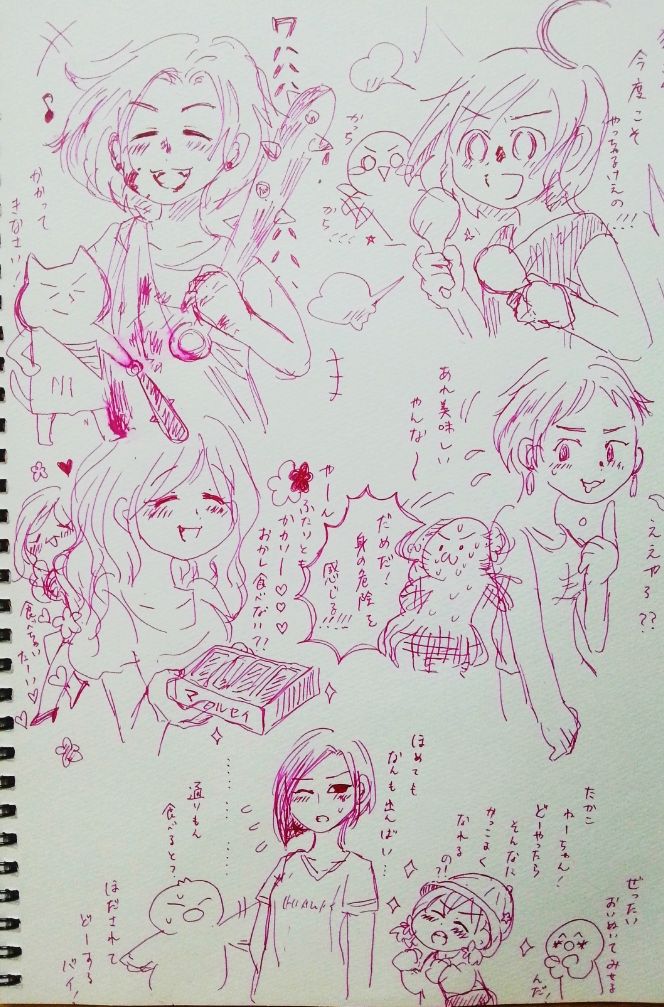 今度こそ
やっちゃるけえの!!!
ワハハハハ
かっち
かち...
かかって
きなさい
N
あれ美味しい
やんな〜
ええやろ??
だめだ!
身の危険を
感じる!!!!
やーん
ふたりとも
かわいー♡♡♡
おかし食べない??
食べちゃい
たーい♡
マルセイ
ほめても
なんも出んばい...
通りもん
食べるとっ?
ほだされて
どーする
バイ!
たかこ
ねーちゃん!
どーやったら
そんなに
かっこよく
なれる
の?!
ぜったい
おいぬいてみせる
んだ!